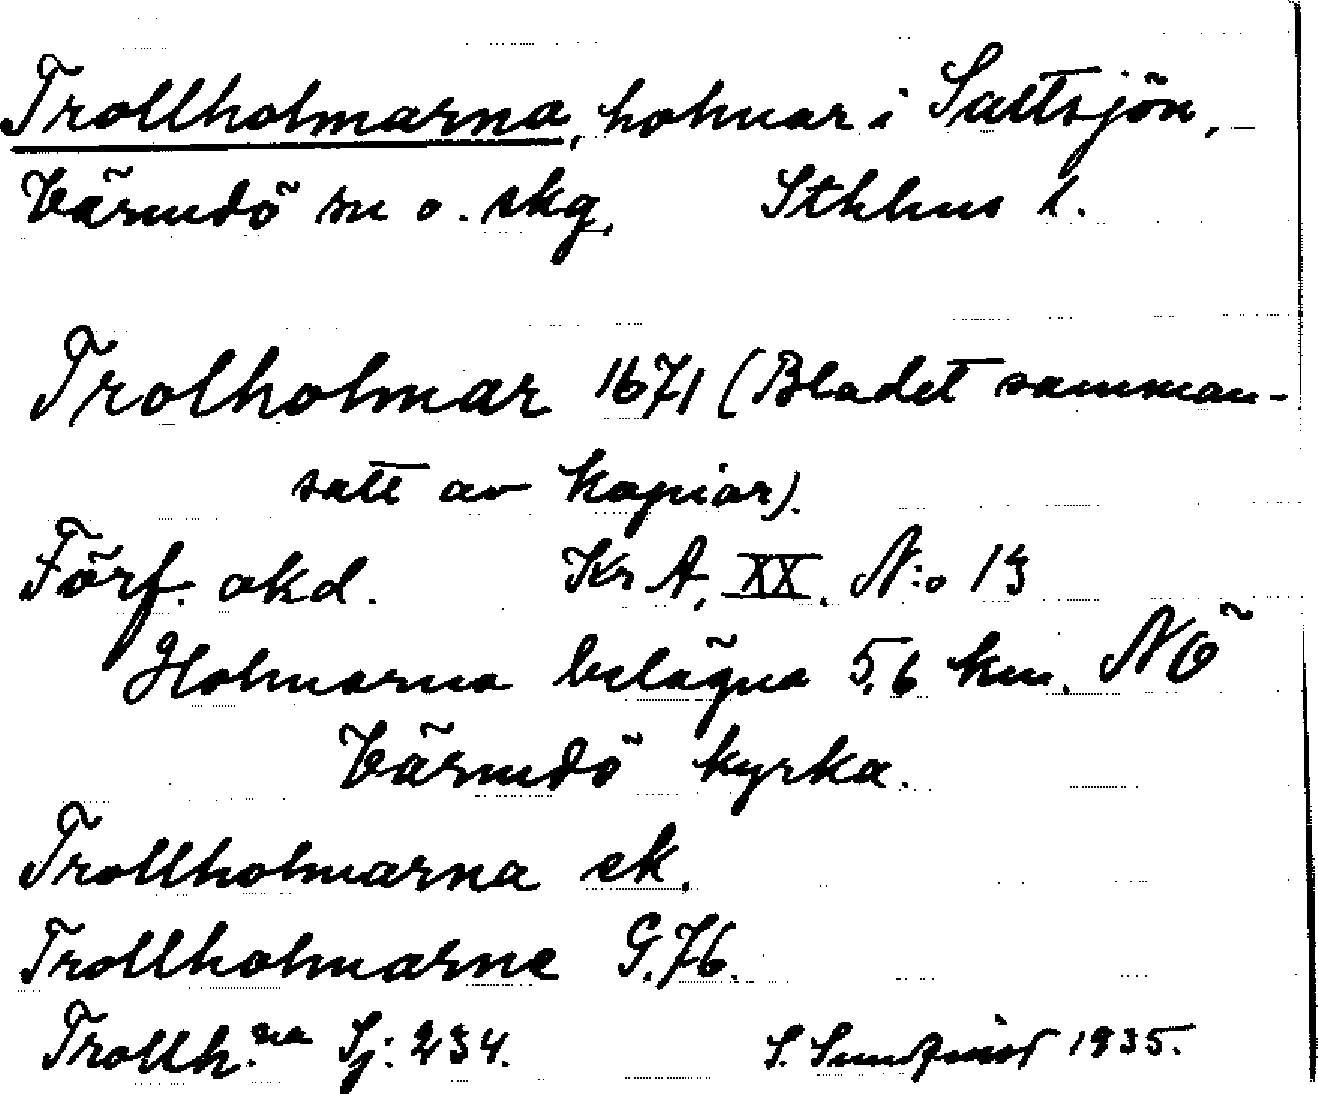 Trollholmarna, holmar i Saltsjön,
Värmdö sn o. skg, Sthlms l.
Trolholmar 1671 (Bladet samman-
satt av kopior).
Förf. okd. Kr A, XX. N:o 13
Holmarna belägna 5,6 km. NÖ
Värmdö kyrka.
Trollholmarna ek.
Trollholmarne G.76.
Trollh.na Sj: 234. S. Sundqvist 1935.